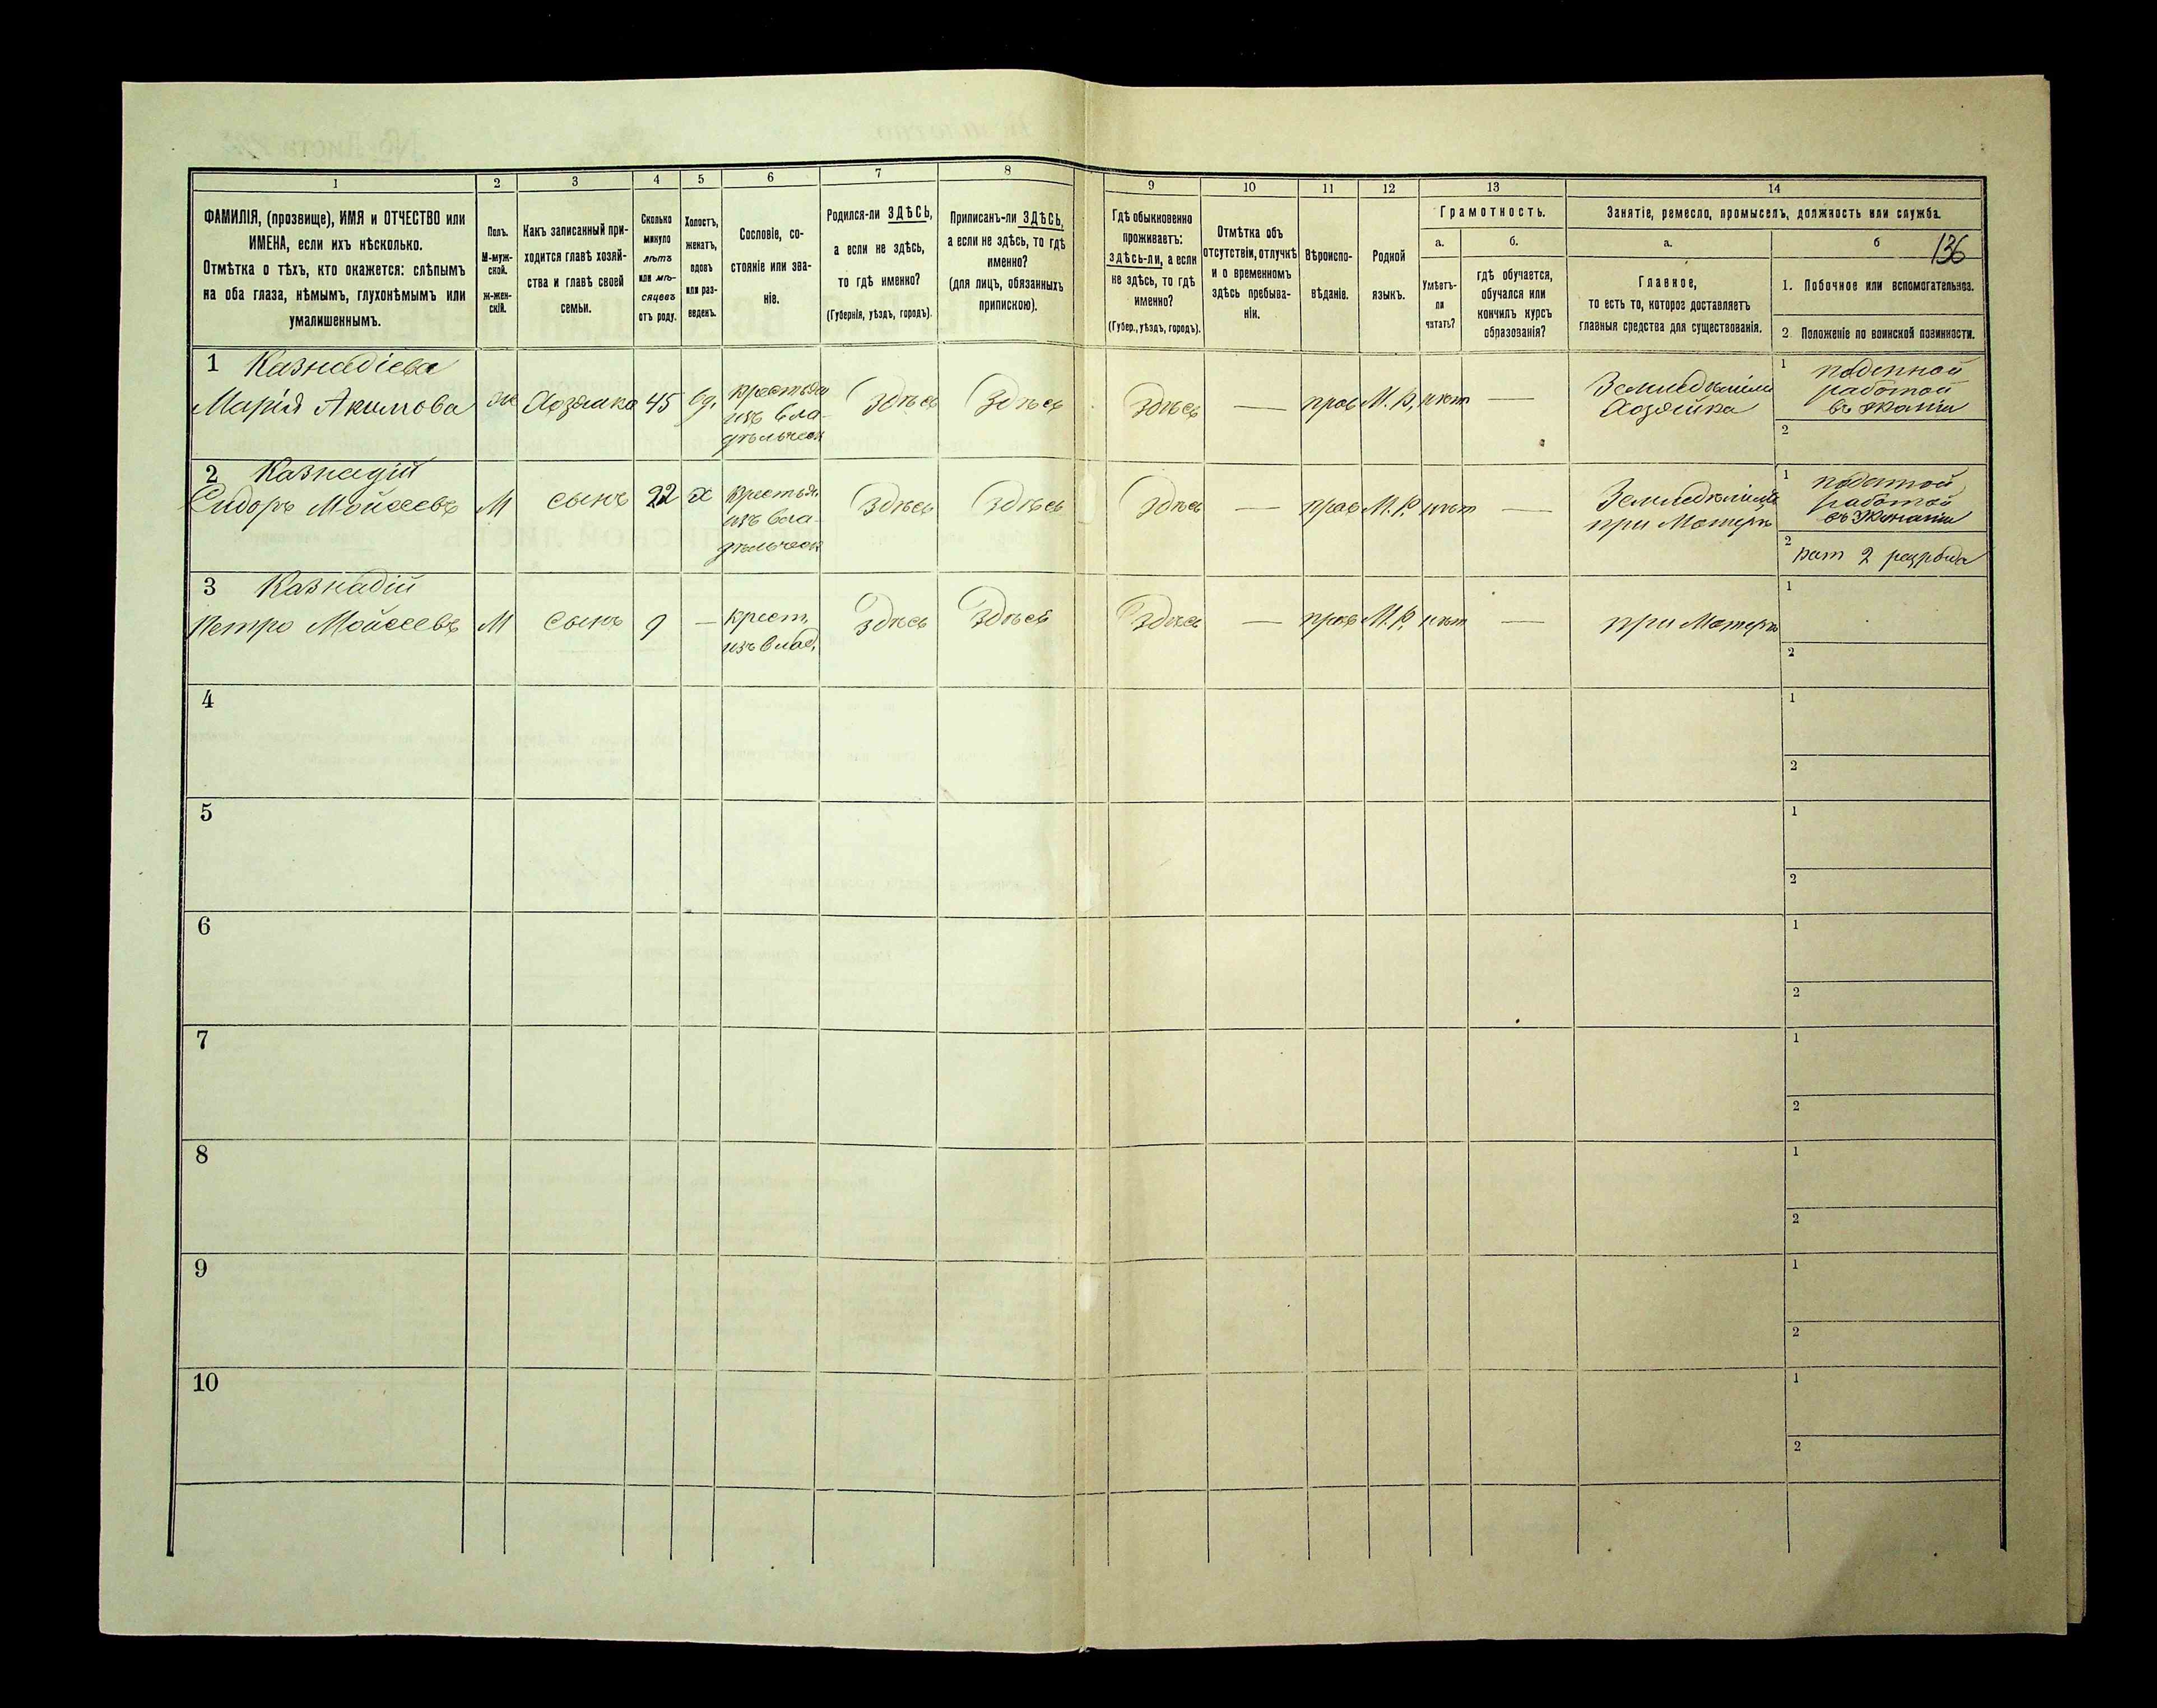 1 2 3 4 5 6 7 8 9 10 11 12 13 14
ФАМИЛІЯ, (прозвище), ИМЯ и ОТЧЕСТВО или
ИМЕНА, если ихъ нѣсколько.
Отмѣтка о тѣхъ, кто окажется: слѣпымъ
на оба глаза, нѣмымъ, глухонѣмымъ или
умалишеннымъ.
Полъ.
М-муж-
ской.
Ж-жен-
скій.
Какъ записанный при-
ходится главѣ хозяй-
ства и главѣ своей
семьи.
Сколько
минуло
лѣтъ
или мѣ-
сяцевъ
отъ роду.
Холостъ,
женатъ,
вдовъ
или раз-
веденъ.
Сословіе, со-
стояніе или зва-
ніе.
Родился-ли ЗДѢСЬ,
а если не здѣсь,
то гдѣ именно?
(Губернія, уѣздъ, городъ).
Приписанъ-ли ЗДѢСЬ,
а если не здѣсь, то гдѣ
именно?
(для лицъ, обязанныхъ
припискою).
Гдѣ обыкновенно
проживаетъ:
здѣсь-ли, а если
не здѣсь, то гдѣ
именно?
(Губер., уѣздъ, городъ).
Отмѣтка объ
отсутствіи, отлучкѣ
и о временномъ
здѣсь пребыва-
ніи.
Вѣроиспо-
вѣданіе.
Родной
языкъ.
Грамотность.
а.
Умѣетъ-
ли
читать?
б.
гдѣ обучается,
обучался или
кончилъ курсъ
образованія?
Занятіе, ремесло, промыселъ, должность или служба.
а.
Главное,
то есть то, которое доставляетъ
главныя средства для существованія.
б
136
1. Побочное или вспомогательное.
2. Положеніе по воинской повинности.
1 Казнадіева
Марія Акимова
ж
Хозяйка
45
вд.
крестьян
изъ вла-
дѣльческ
Здѣсь
Здѣсь
Здѣсь
—
прав
М. Р.
нѣтъ
—
Земледѣліе
Хозяйка
1 поденной
работой
въ экономіи
2
2 Казнадій
Сидоръ Мойсеевъ
М
сынъ
22
х
крестьян.
изъ вла-
дѣльческ
Здѣсь
Здѣсь
Здѣсь
—
прав
М. Р.
нѣтъ
—
Земледѣліе
при Матери
1 поденной
работой
въ экономіи
2 рат 2 разряда
3 Казнадій
Петро Мойсеевъ
М
сынъ
9
—
крест.
изъ влад.
Здѣсь
Здѣсь
Здѣсь
—
прав
М. Р.
нѣтъ
—
при Матери
1
2
4
1
2
5
1
2
6
1
2
7
1
2
8
1
2
9
1
2
10
1
2